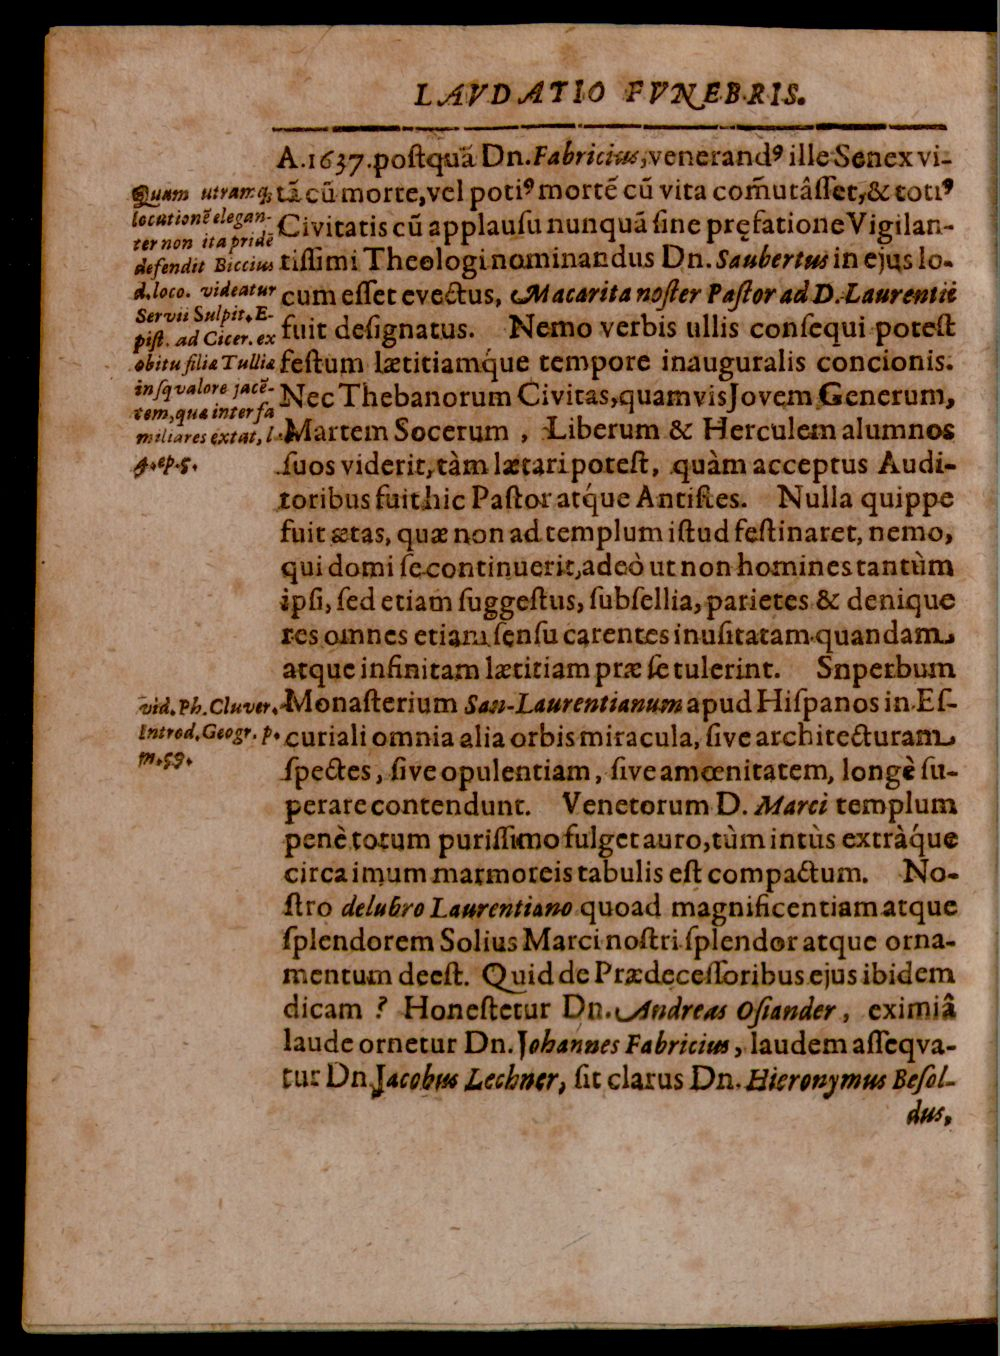 LAVDATIO FVNEBRIS.
A.1637.poſtquã Dn.Fabricius,venerandꝰ ille Senex vi-
tã cũ morte,vel potiꝰ mortẽ cũ vita com̃utâſſet,& totiꝰ
Civitatis cũ applauſu nunquã ſine pręfatione Vigilan-
tiſſimi Theologi nominandus Dn. Saubertus in ejus lo-
cum eſſet evectus, Macarita noſter Paſtor ad D. Laurentii
fuit deſignatus. Nemo verbis ullis conſequi poteſt
feſtum lætitiamq́ue tempore inauguralis concionis.
Nec Thebanorum Civitas,quamvis Jovem Generum,
Martem Socerum , Liberum & Herculem alumnos
ſuos viderit,tàm lætari poteſt, quàm acceptus Audi-
toribus fuit hic Paſtor atq́ue Antiſtes. Nulla quippe
fuit ætas, quæ non ad templum iſtud feſtinaret, nemo,
qui domi ſe continuerit,adeò ut non homines tantùm
ipſi, ſed etiam ſuggeſtus, ſubſellia, parietes & denique
res omnes etiam ſenſu carentes inuſitatam quandam
atque infinitam lætitiam præ ſe tulerint. Snperbum
Monaſterium San-Laurentianum apud Hiſpanos in Eſ-
curiali omnia alia orbis miracula, ſive architecturam
ſpectes, ſive opulentiam, ſive amœnitatem, longè ſu-
perare contendunt. Venetorum D. Marci templum
penè totum puriſſimo fulget auro,tùm intùs extràq́ue
circa imum marmoreis tabulis eſt compactum. No-
ſtro delubro Laurentiano quoad magnificentiam atque
ſplendorem Solius Marci noſtri ſplendor atque orna-
mentum deeſt. Quid de Prædeceſſoribus ejus ibidem
dicam ? Honeſtetur Dn. Andreas Oſiander, eximiâ
laude ornetur Dn. Johannes Fabricius, laudem aſſeqva-
tur Dn. Jacobus Lechner, ſit clarus Dn. Hieronymus Beſol-
dus,
Quam utramq;
locutionẽ elegan-
ter non ita pridẽ
defendit Biccius
d.loco. videatur
Servii Sulpit. E-
piſt. ad Cicer. ex
obitu filiæ Tulliæ
in ſqvalore jacẽ-
tem,quæ inter fa
miliares extat, l.
4.ep.5.
vid. Ph. Cluver.
Introd. Geogr. p.
m.59.